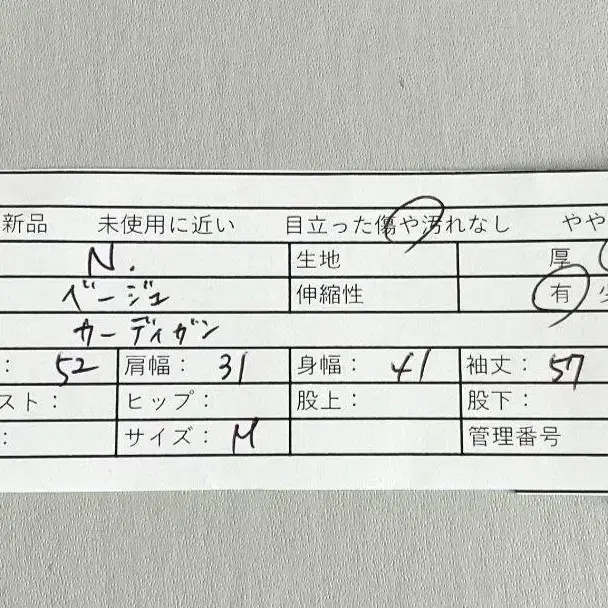 新品 未使用に近い 目立った傷や汚れなし やや
N. 生地 厚
ベージュ 伸縮性 有 少
カーディガン
: 52 肩幅: 31 身幅: 41 袖丈: 57
スト: ヒップ: 股上: 股下:
: サイズ: M 管理番号